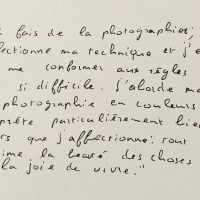 fais de la photographie,
ectionné ma technique et j'e
me conformer aux règles
si difficile. J'aborde ma
photographie en couleurs
prête particulièrement bien
rs que j'affectionne: tout
ime la beauté des choses
la joie de vivre."